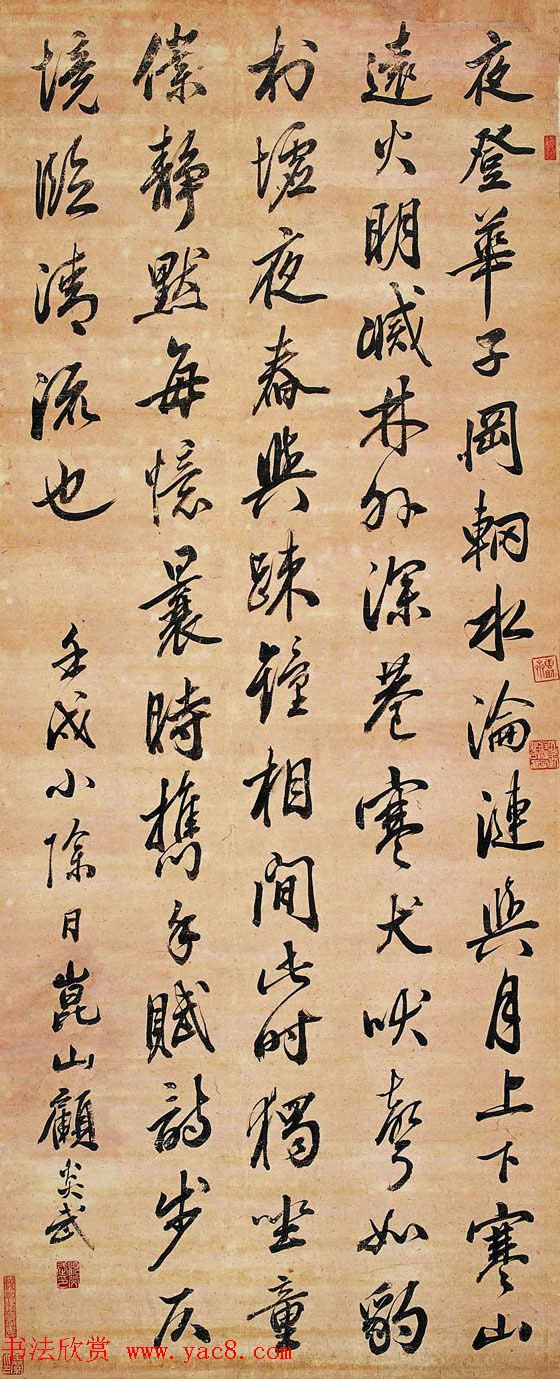 夜登華子岡輞水淪漣與月上下寒山
遠火明滅林外深巷寒犬吠聲如豹
村墟夜舂與疎鐘相間此時獨坐童
僕靜默每憶曩時攜手賦詩步仄
境臨清流也
壬戌小除日崑山顧炎武
书法欣赏 www.yac8.com